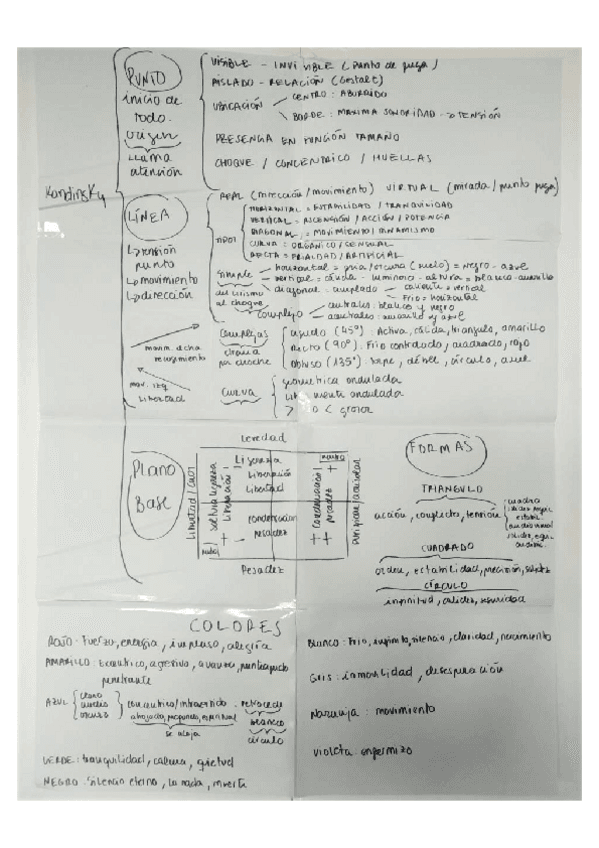 Kandinsky
PUNTO
inicio de
todo.
origen
LLAMA
atención
VISIBLE - INVISIBLE (Punto de fuga)
AISLADO - RELACIÓN (Gestalt)
UBICACIÓN
CENTRO: ABURRIDO
BORDE: MAXIMA SONORIDAD → TENSIÓN
PRESENCIA EN FUNCIÓN TAMAÑO
CHOQUE / CONCENTRICO / HUELLAS
LÍNEA
↳ tensión
punto
↳ movimiento
↳ dirección
REAL (Dirección / movimiento) VIRTUAL (mirada / punto fuga)
TIPOS
HORIZONTAL = ESTABILIDAD / TRANQUILIDAD
VERTICAL = ASCENSIÓN / ACCIÓN / POTENCIA
DIAGONAL = MOVIMIENTO / DINAMISMO
CURVA: ORGÁNICO / SENSUAL
RECTA = FRIALDAD / ARTIFICIAL
Simple
horizontal = fría/oscura (suelo) = negro - azul
vertical = cálida - luminoso - altura = blanco-amarillo
diagonal: templado
caliente = vertical
Frio = horizontal
del lirismo
al choque
Complejo
centrales: blanco y negro
acentrales: amarillo y azul
movim. dcha
mov. izq
Libertad
Complejas
por choque
agudo (45º): Activa, cálida, triangulo, amarillo
Recto (90º): Frio controlado, cuadrado, rojo
Obtuso (135º): torpe, débil, círculo, azul
Curva
geometrica ondulada
Libremente ondulada
> o < grosor
Plano
Base
Levedad
Libertad / Calor
Soltura ligereza
Liberación
+
-
Ligereza
Liberación
Libertad
Condensación
pesadez
-
Condensación
pesadez
+
++
Pesadez
FORMAS
TRIANGULO
acción, conflicto, tensión
CUADRADO
orden, estabilidad, precisión, solidez
CÍRCULO
infinitud, calidez, seguridad
COLORES
ROJO: Fuerza, energia, impulso, alegría
AMARILLO: Excéntrico, agresivo, avanza, puntiagudo
penetrante
AZUL
claro
medio
oscuro
concentrico / introvertido - retrocede
relajado, profundo, espiritual
se aleja
blanco
círculo
VERDE: tranquilidad, calma, quietud
NEGRO: Silencio eterno, la nada, muerte
Blanco: Frio, infinito, silencio, claridad, nacimiento
Gris: inmovilidad, desesperación
Naranja: movimiento
Violeta: enfermizo